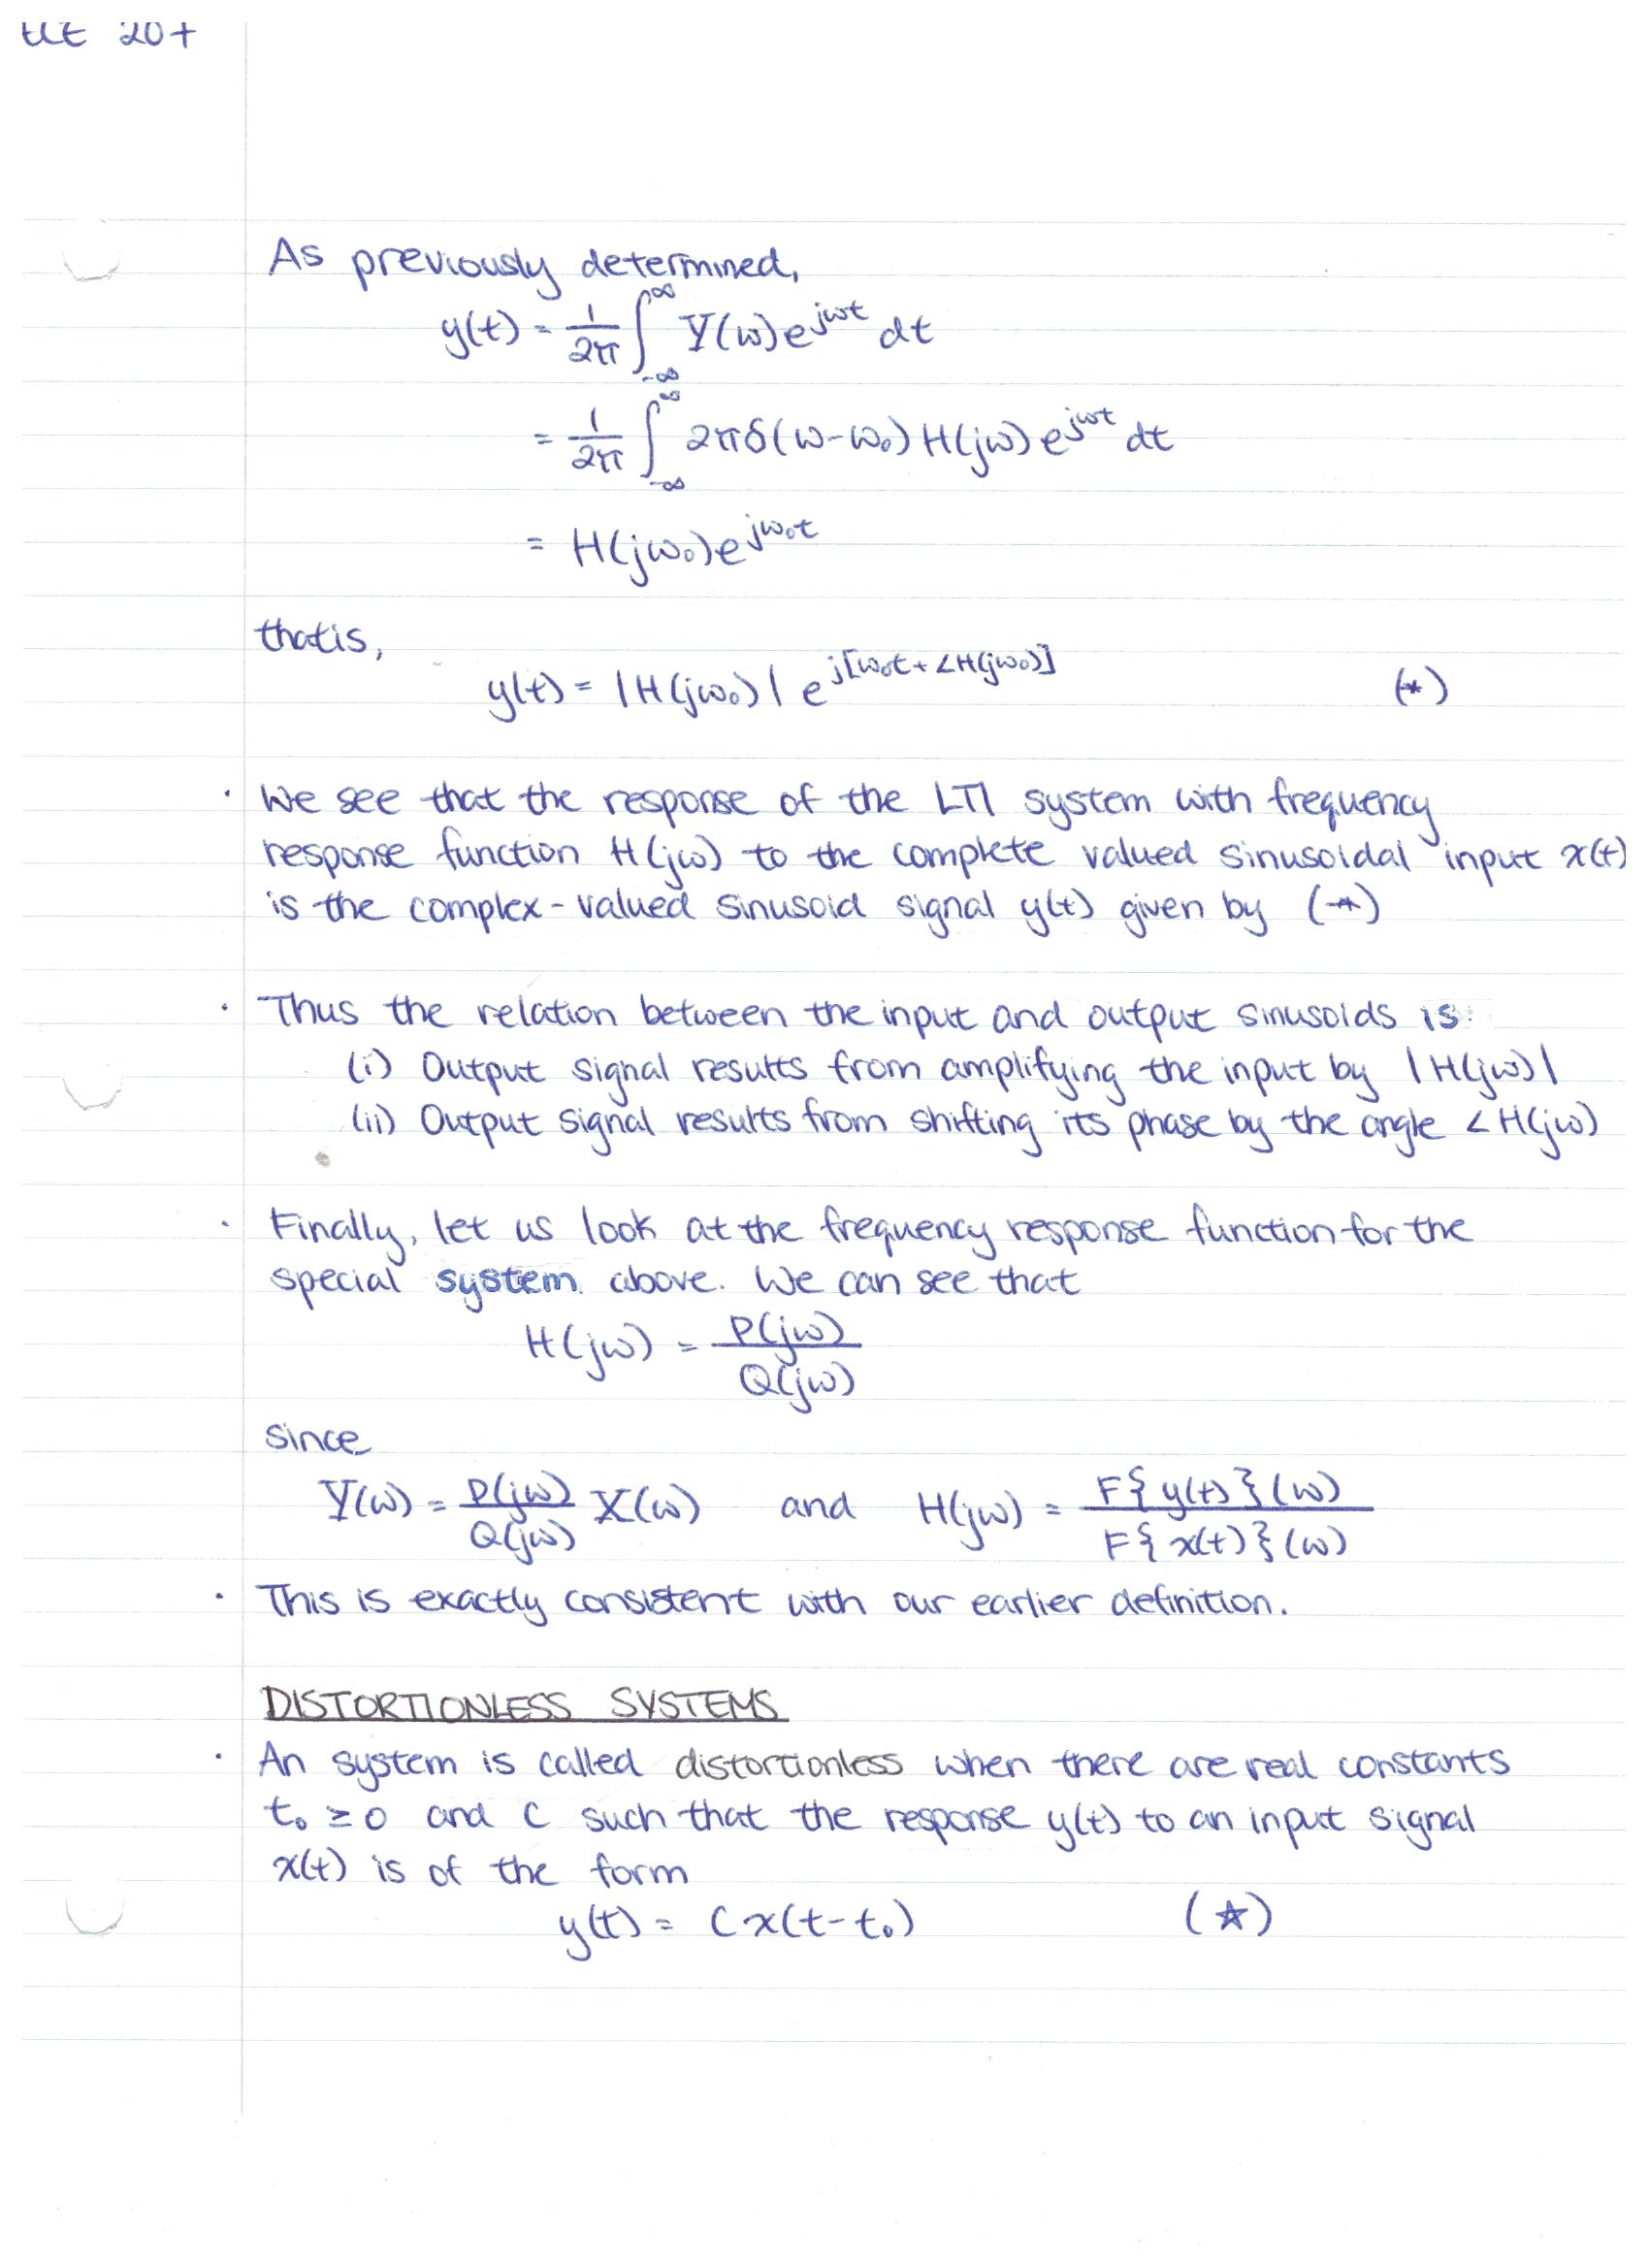 ELE 207
As previously determined,
y(t) = 1/2π ∫_{-∞}^{∞} Y(ω)e^{jωt} dt
= 1/2π ∫_{-∞}^{∞} 2πδ(ω-ω₀) H(jω) e^{jωt} dt
= H(jω₀)e^{jω₀t}
that is,
y(t) = |H(jω₀)| e^{j[ω₀t + ∠H(jω₀)]} (*)
· We see that the response of the LTI system with frequency
response function H(jω) to the complete valued sinusoidal input x(t)
is the complex-valued sinusoid signal y(t) given by (*)
· Thus the relation between the input and output sinusoids is:
(i) Output signal results from amplifying the input by |H(jω)|
(ii) Output signal results from shifting its phase by the angle ∠H(jω)
· Finally, let us look at the frequency response function for the
special system above. We can see that
H(jω) = P(jω)/Q(jω)
since
Y(ω) = P(jω)/Q(jω) X(ω) and H(jω) = F{y(t)}(ω)/F{x(t)}(ω)
· This is exactly consistent with our earlier definition.
DISTORTIONLESS SYSTEMS
· An system is called distortionless when there are real constants
t₀ ≥ 0 and C such that the response y(t) to an input signal
x(t) is of the form
y(t) = C x(t-t₀) (☆)